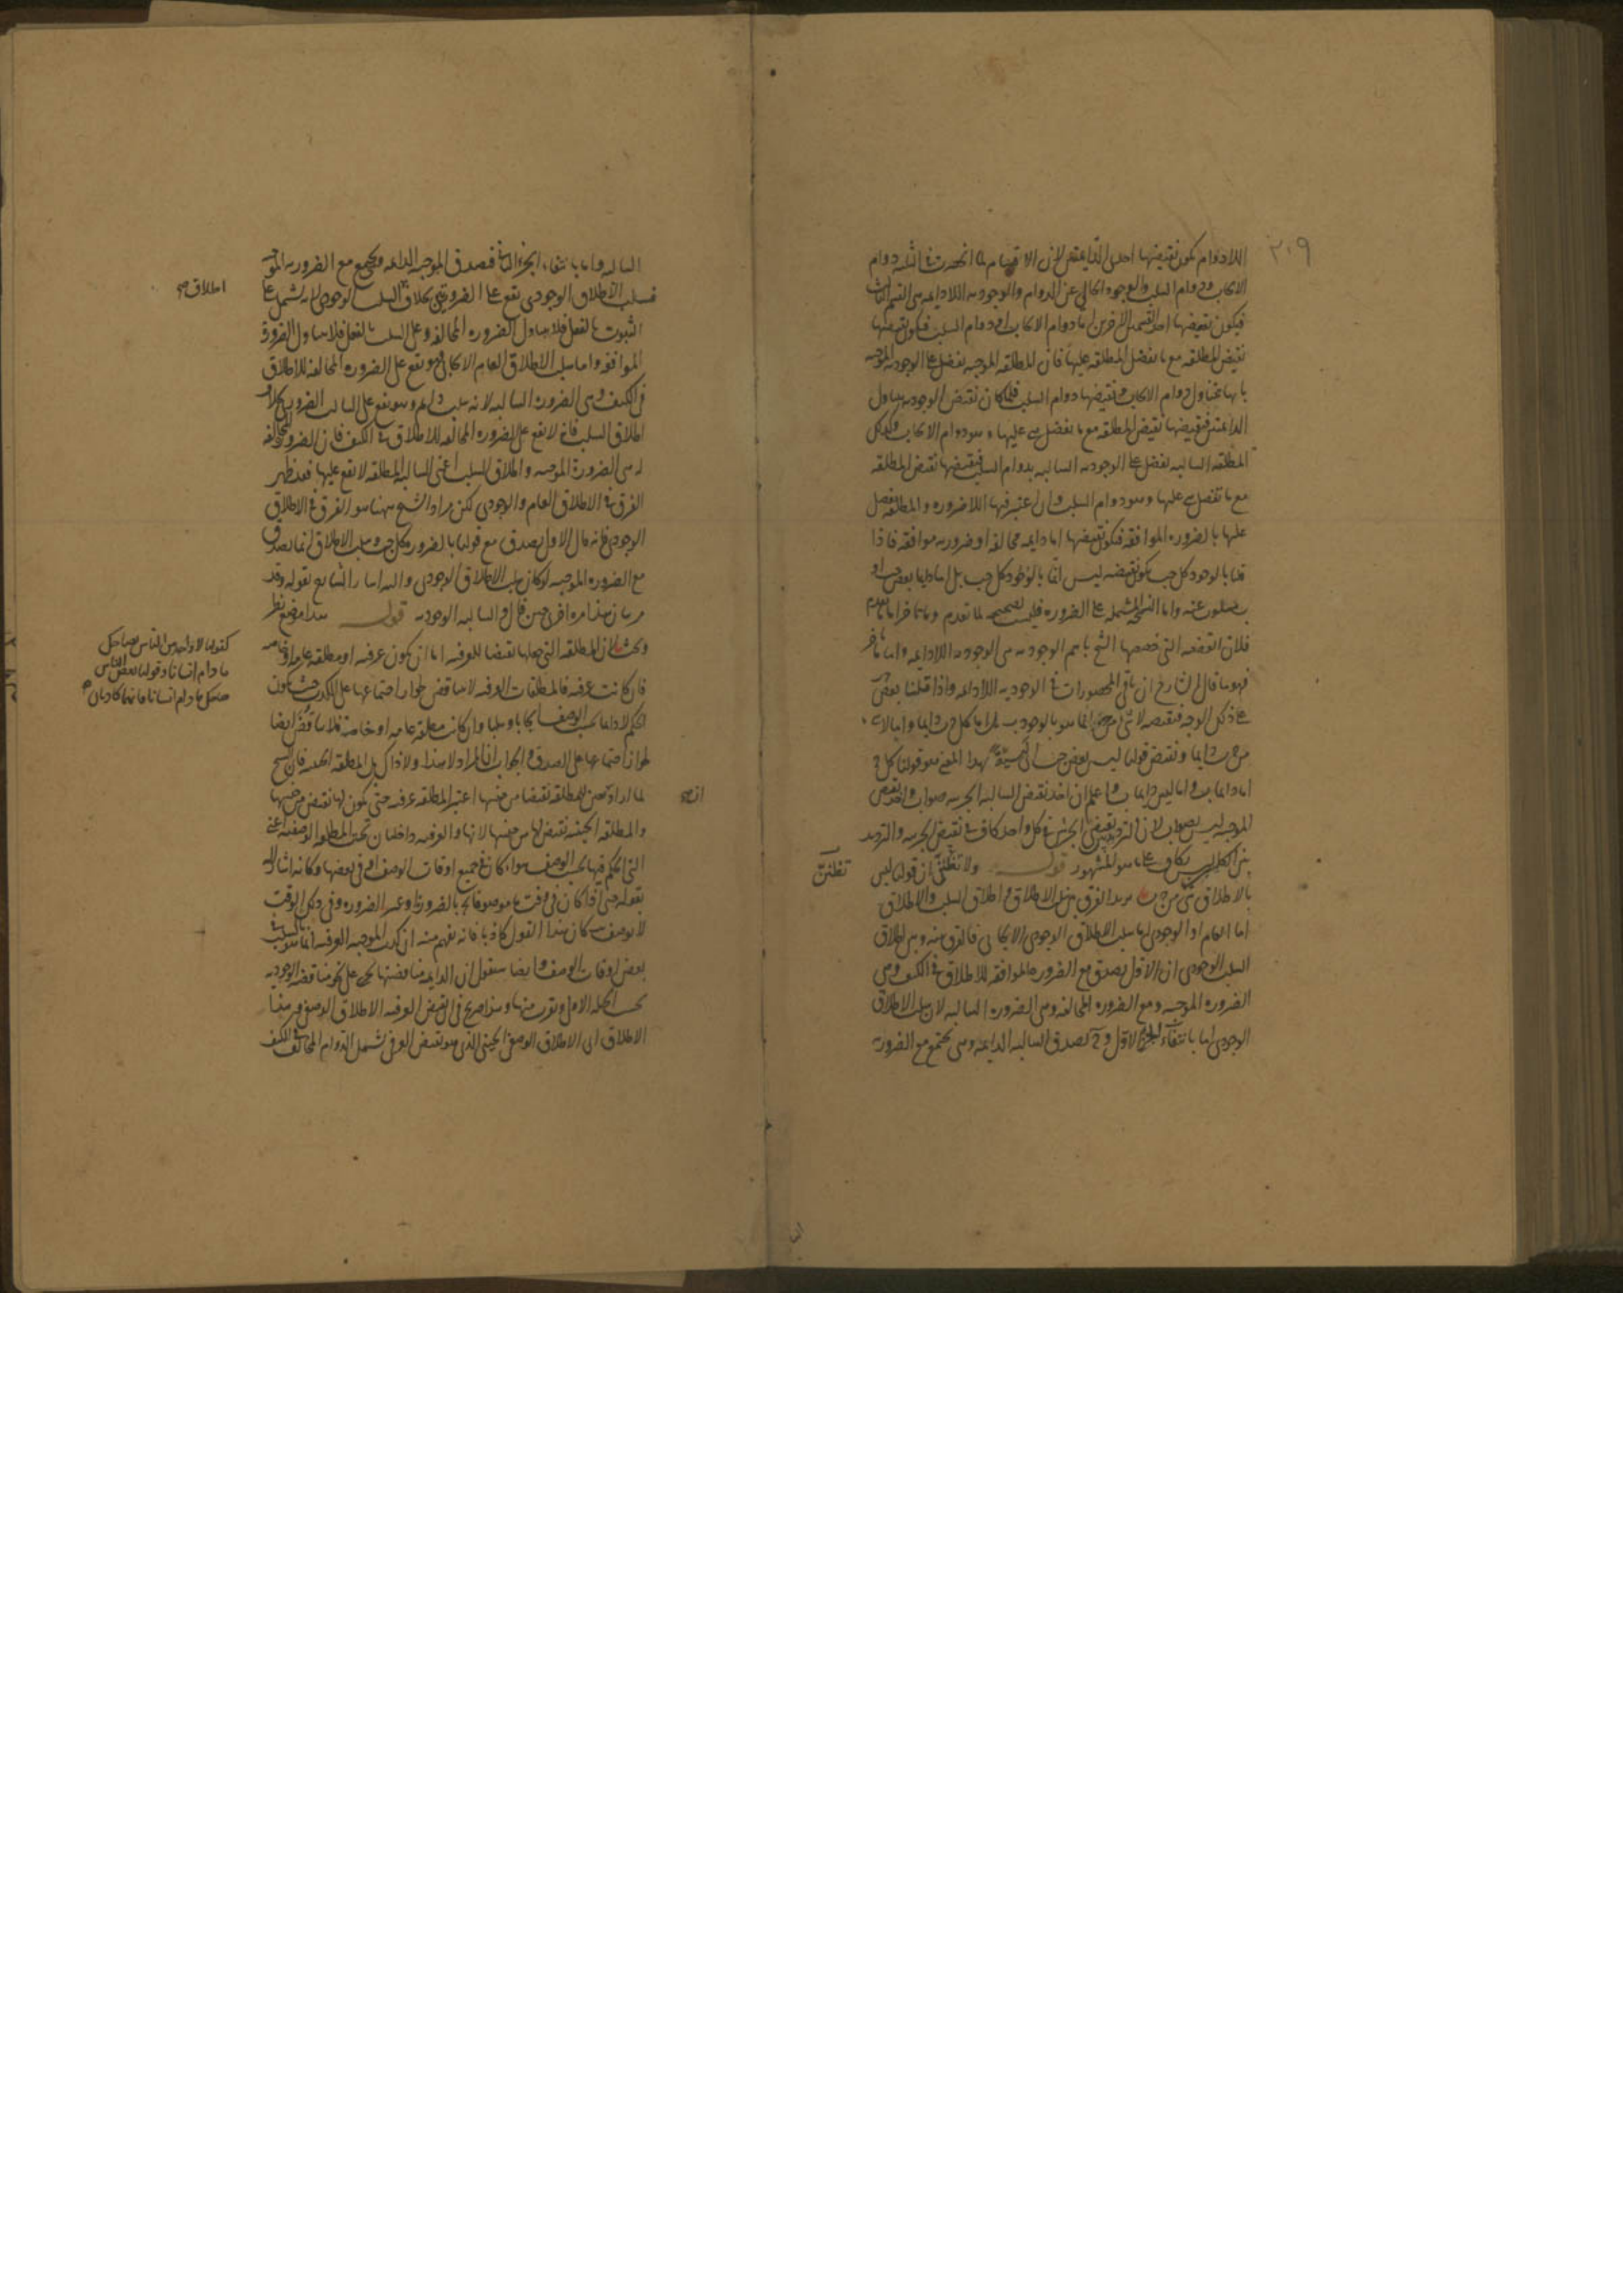 ٢٠٩
اللادوام يكون نقيضها احدى الدايمتين لان الاقسام لما انحصرت في الثلثه دوام
الايجاب ودوام السلب والوجود الخالي عن الدوام والوجوديه اللادايمه هي القسم الثالث
فيكون نقيضها احد القسمين الاخرين اما دوام الايجاب او دوام السلب فيكون نقيضها
نقيض المطلقه مع ما يفضل المطلقه عليها فان المطلقه الموجبه تفضل على الوجوديه الموجبه
بانها تتناول دوام الايجاب ونقيضها دوام السلب فلما كان نقيض الوجوديه يتناول
الدايمتين فنقيضها نقيض المطلقه مع ما يفضل هي عليها وهو دوام الايجاب وكذلك
المطلقه السالبه تفضل على الوجوديه السالبه بدوام السلب فنقيضها نقيض المطلقه
مع ما تفضل هي عليها وهو دوام السلب وان اعتبر فيها اللاضروره والمطلقه تفضل
عليها بالضروره الموافقه فيكون نقيضها اما دايمه مخالفه او ضروريه موافقه فاذا
قلنا بالوجود كل ج ب يكون نقيضه ليس انما بالوجود كل ج ب بل اما دايما بعض ج ب او
مسلوب عنه واما النسخه المشتمله على الضروره فليست بصحيحه لما تقدم وما تاخر اما ما تقدم
فلان القضيه التي خصصها الشيخ باسم الوجوديه هي الوجوديه اللادايمه واما ما تاخر
فهو ما قال الشارح ان باقي المحصورات في الوجوديه اللادايمه واذا قلنا بعض
على ذلك الوجه فنقيضه لا شي من ج انما هو بالوجود ب بل اما كل ج ب دايما واما لا شي
من ج ب دايما ونقيض قولنا ليس بعض ج ب بهذا المعنى هو قولنا كل ج
اما دايما ب واما ليس دايما ب واعلم ان اخذ نقيض السالبه الجزييه صواب واخذ نقيض
الموجبه ليس بصواب لان الترديد بين نقيضي الجزئين في كل واحد كاف في نقيض الجزييه والترديد
بين الكليتين ليس بكاف على ما هو المشهور قوله ولا تظنن ان قولنا ليس
تظننّ
بالاطلاق شي من ج ب يريد الفرق بين سلب الاطلاق واطلاق السلب والاطلاق
اما العام او الوجودي اما سلب الاطلاق الوجودي الايجابي فالفرق بينه وبين اطلاق
السلب الوجودي ان الاول يصدق مع الضروره الموافقه للاطلاق في الكيف وهي
الضروره الموجبه ومع الضروره المخالفه وهي الضروره السالبه لان سلب الاطلاق
الوجودي اما بانتفاء الجزء الاول وح يصدق السالبه الدايمه وهي تجتمع مع الضروره
السالبه واما بانتفاء الجزء الثاني فيصدق الموجبه الدايمه ويجتمع مع الضروريه الموجبه
فسلب الاطلاق الوجودي يقع على الضرورتين بخلاف السلب الوجودي لانه يشتمل على
اطلاق صح
الثبوت بالفعل فلا يتناول الضروره المخالفه وعلى السلب بالفعل فلا يتناول الضرورة
الموافقه واما سلب الاطلاق العام الايجابي فهو يقع على الضروره المخالفه للاطلاق
في الكيف وهي الضروره السالبه لانه سلب دايم وهو يقع على السالب الضروري بخلاف
اطلاق السلب فانه لا يقع على الضروره المخالفه للاطلاق في الكيف فان الضروره المخالفه
له هي الضرورة الموجبه واطلاق السلب اعني السالبه المطلقه لا تقع عليها فقد ظهر
الفرق في الاطلاق العام والوجودي لكن مراد الشيخ ههنا هو الفرق في الاطلاق
الوجودي فانه قال الاول يصدق مع قولنا بالضروره كل ج ب وسلب الاطلاق انما يصدق
مع الضروره الموجبه لو كان سلب الاطلاق الوجودي واليه اشار الشارح بقوله وقد
مر بيان هذا مره اخرى حين قال والسالبه الوجوديه قوله هذا موضع نظر
وبحث لان المطلقه التي جعلها نقيضا للعرفيه اما ان يكون عرفيه او مطلقه عامه او خاصه
كقولنا لا واحد من الناس بضاحك
ما دام انسانا وقولنا بعض الناس
ضاحك ما دام انسانا فانهما كاذبان صح
فان كانت عرفيه فالمطلقات العرفيه لا تناقض لجواز اجتماعها على الكذب حيث يكون
الحكم لا دايما بحسب الوصف ايجابا وسلبا وان كانت مطلقه عامه او خاصة فلا تناقض ايضا
لجواز اجتماعهما على الصدق والجواب انا المراد لا هذا ولا ذاك بل المطلقه الحينيه فان الشيخ
لما اراد ان يبين للمطلقه نقيضا من جنسها اعتبر المطلقه عرفيه حتى يكون لها نقيض من جنسها
والمطلقه الحينيه نقيض لها من جنسها لانها والعرفيه داخلتان تحت المطلقه الوصفيه اعني
التي الحكم فيها بحسب الوصف سواء كان في جميع اوقات الوصف او في بعضها وكانه اشار اليه
بقوله حتى اذا كان في وقت ما موصوفا بج بالضرورة او غير الضروره وفي ذلك الوقت
لا يوصف ب كان هذا القول كاذبا فانه يفهم منه ان كذب الموجبه العرفيه انما هو بالسلب في
بعض اوقات الوصف وايضا سيقول ان الدايمه مناقضتها تجري على نحو مناقضه الوجوديه
بحسب الحيله الاولى وتقرب منها وهذا صريح في ان نقيض العرفيه الاطلاق الوصفي وهذا
الاطلاق اي الاطلاق الوصفي الحيني الذي هو نقيض العرفي يشمل الدوام المخالف في الكيف